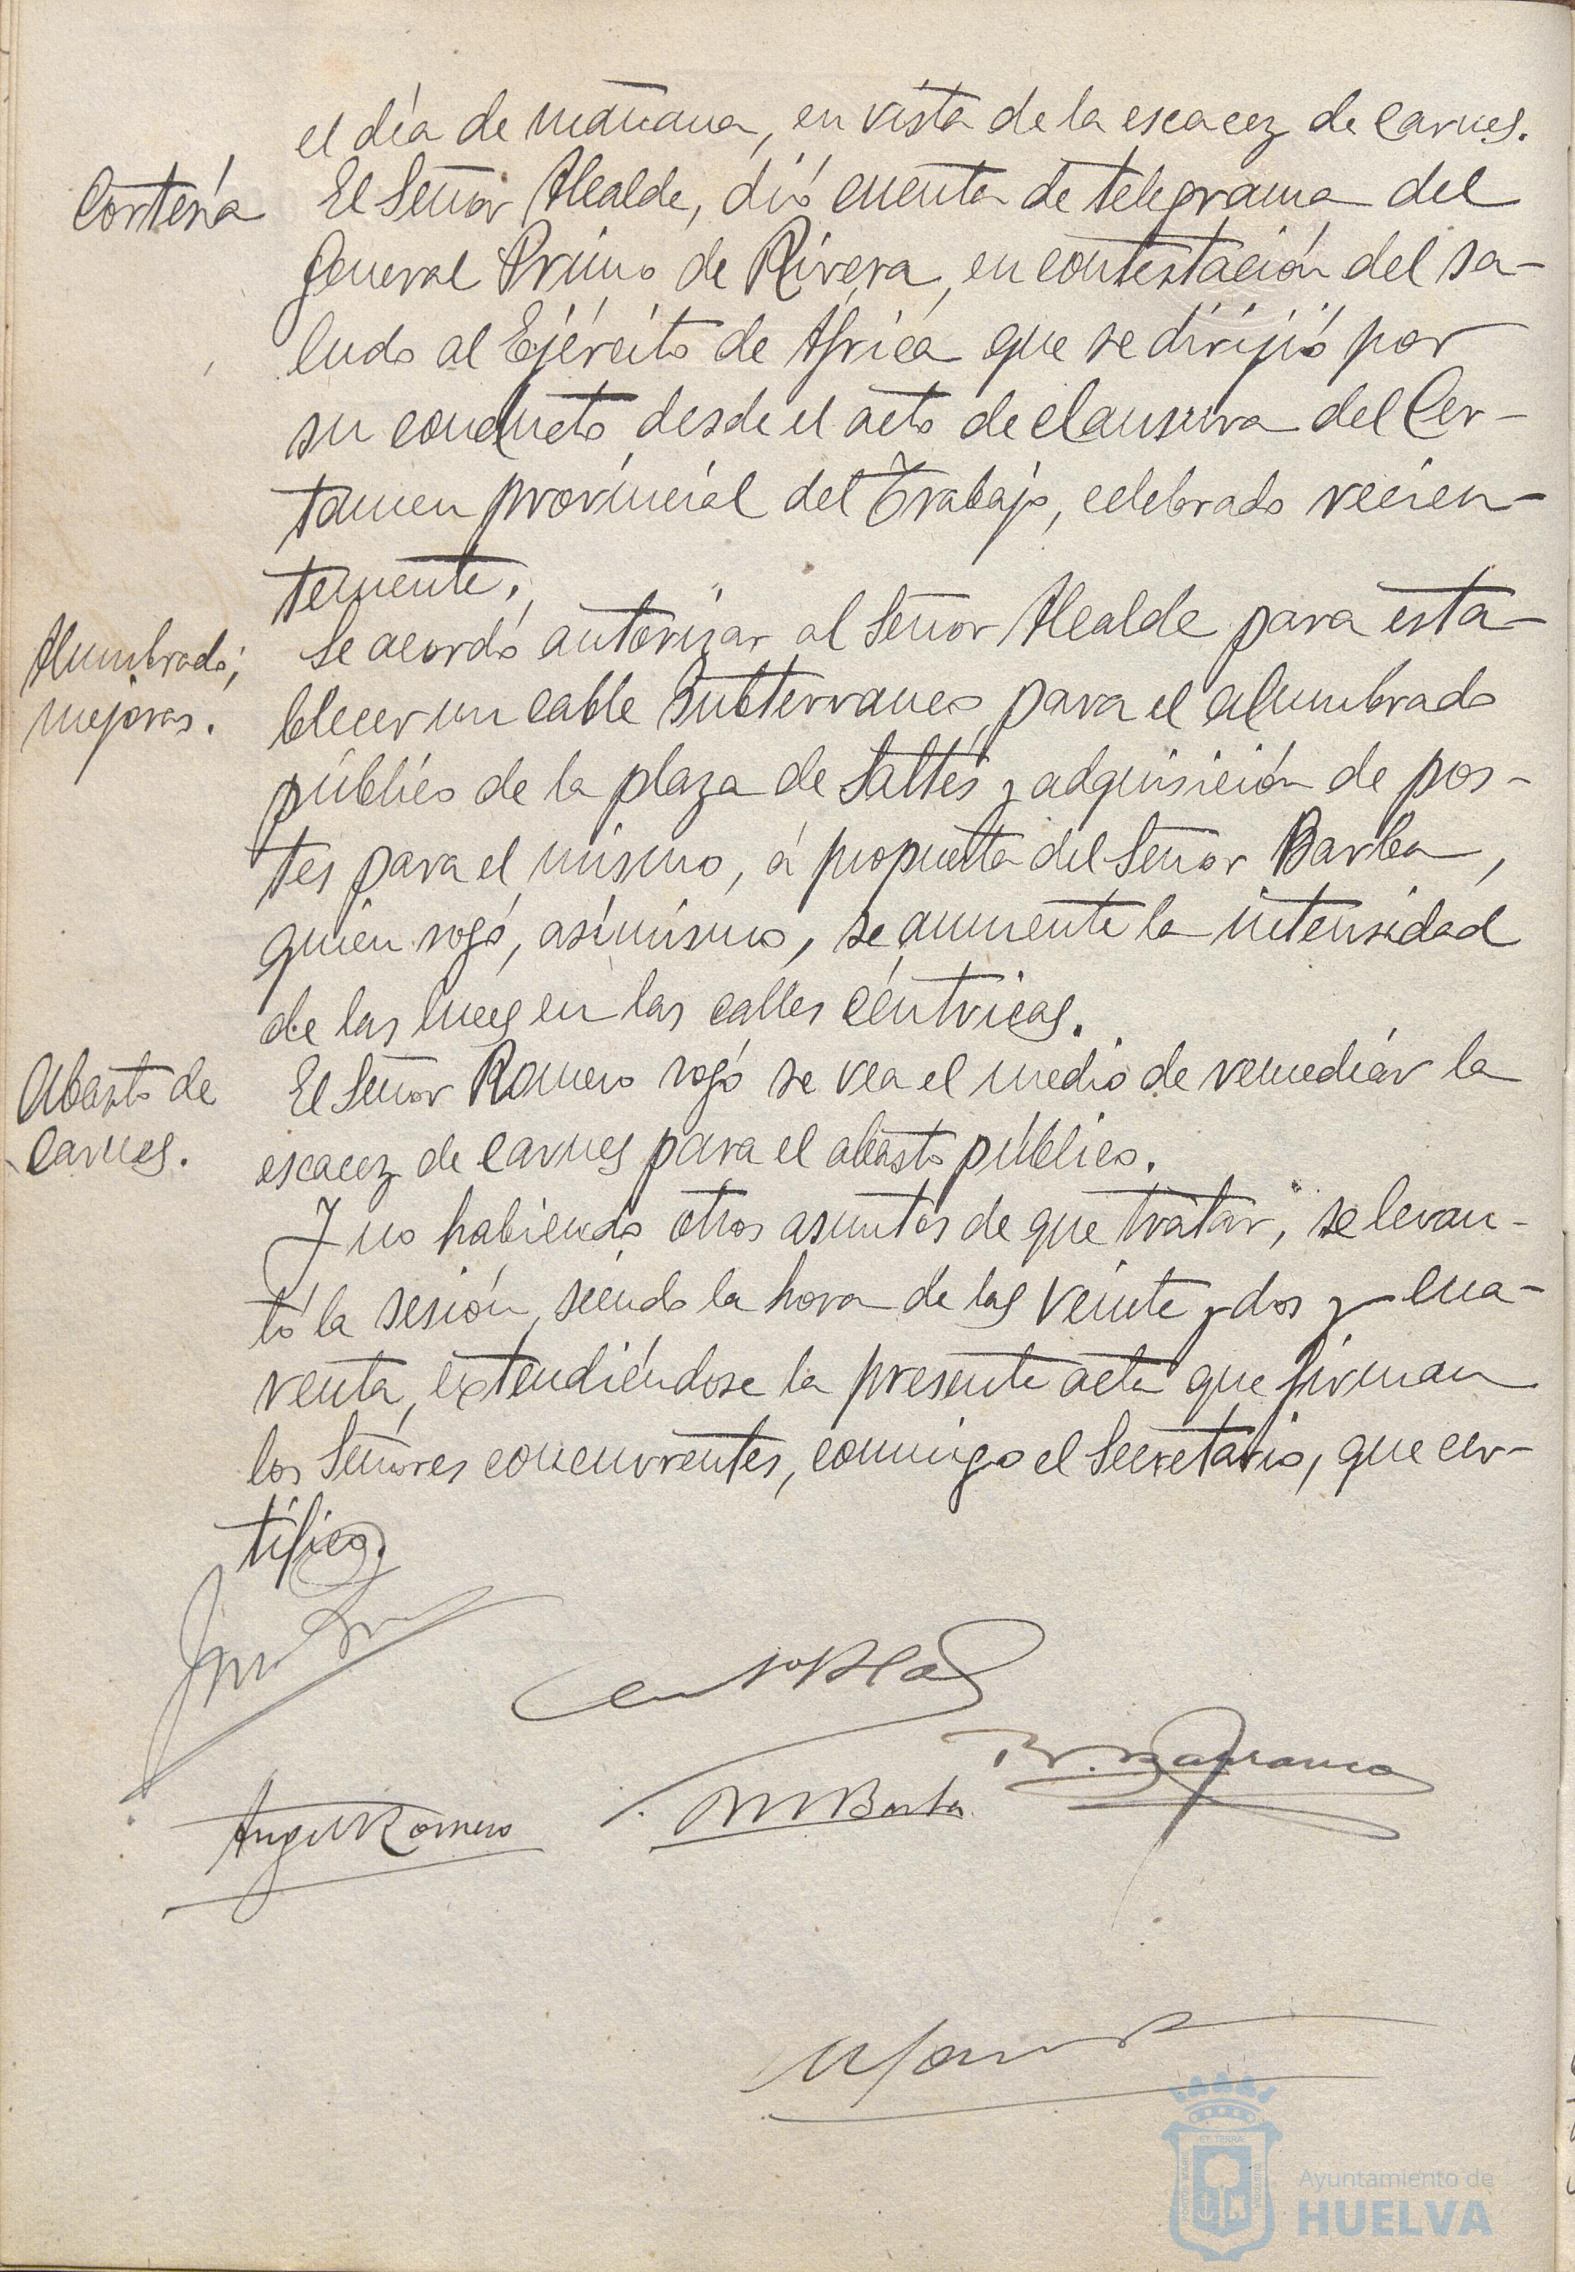 el día de mañana, en vista de la escacez de carnes.
Cortesía
El Señor Alcalde, dió cuenta de telegrama del
General Primo de Rivera, en contestación del sa-
ludo al Ejército de Africa que se dirijió por
su conducto desde el acto de clausura del Cer-
tamen provincial del Trabajo, celebrado recien-
temente.
Alumbrado;
mejoras.
Se acordó autorizar al Señor Alcalde para esta-
blecer un cable subterraneo para el alumbrado
público de la plaza de Saltés y adquisición de pos-
tes para el mismo, á propuesta del Señor Barba,
quien rogó, asimismo, se aumente la intensidad
de las luces en las calles céntricas.
Abasto de
carnes.
El Señor Romero rogó se vea el medio de remediar la
escacez de carnes para el abasto público.
Y no habiendo otros asuntos de que tratar, se levan-
tó la sesión, siendo la hora de las veinte y dos y cua-
renta, extendiéndose la presente acta que firman
los Señores concurrentes, conmigo el Secretario, que cer-
tífico.
Angel Romero
M Barba
AYUNTAMIENTO de
HUELVA